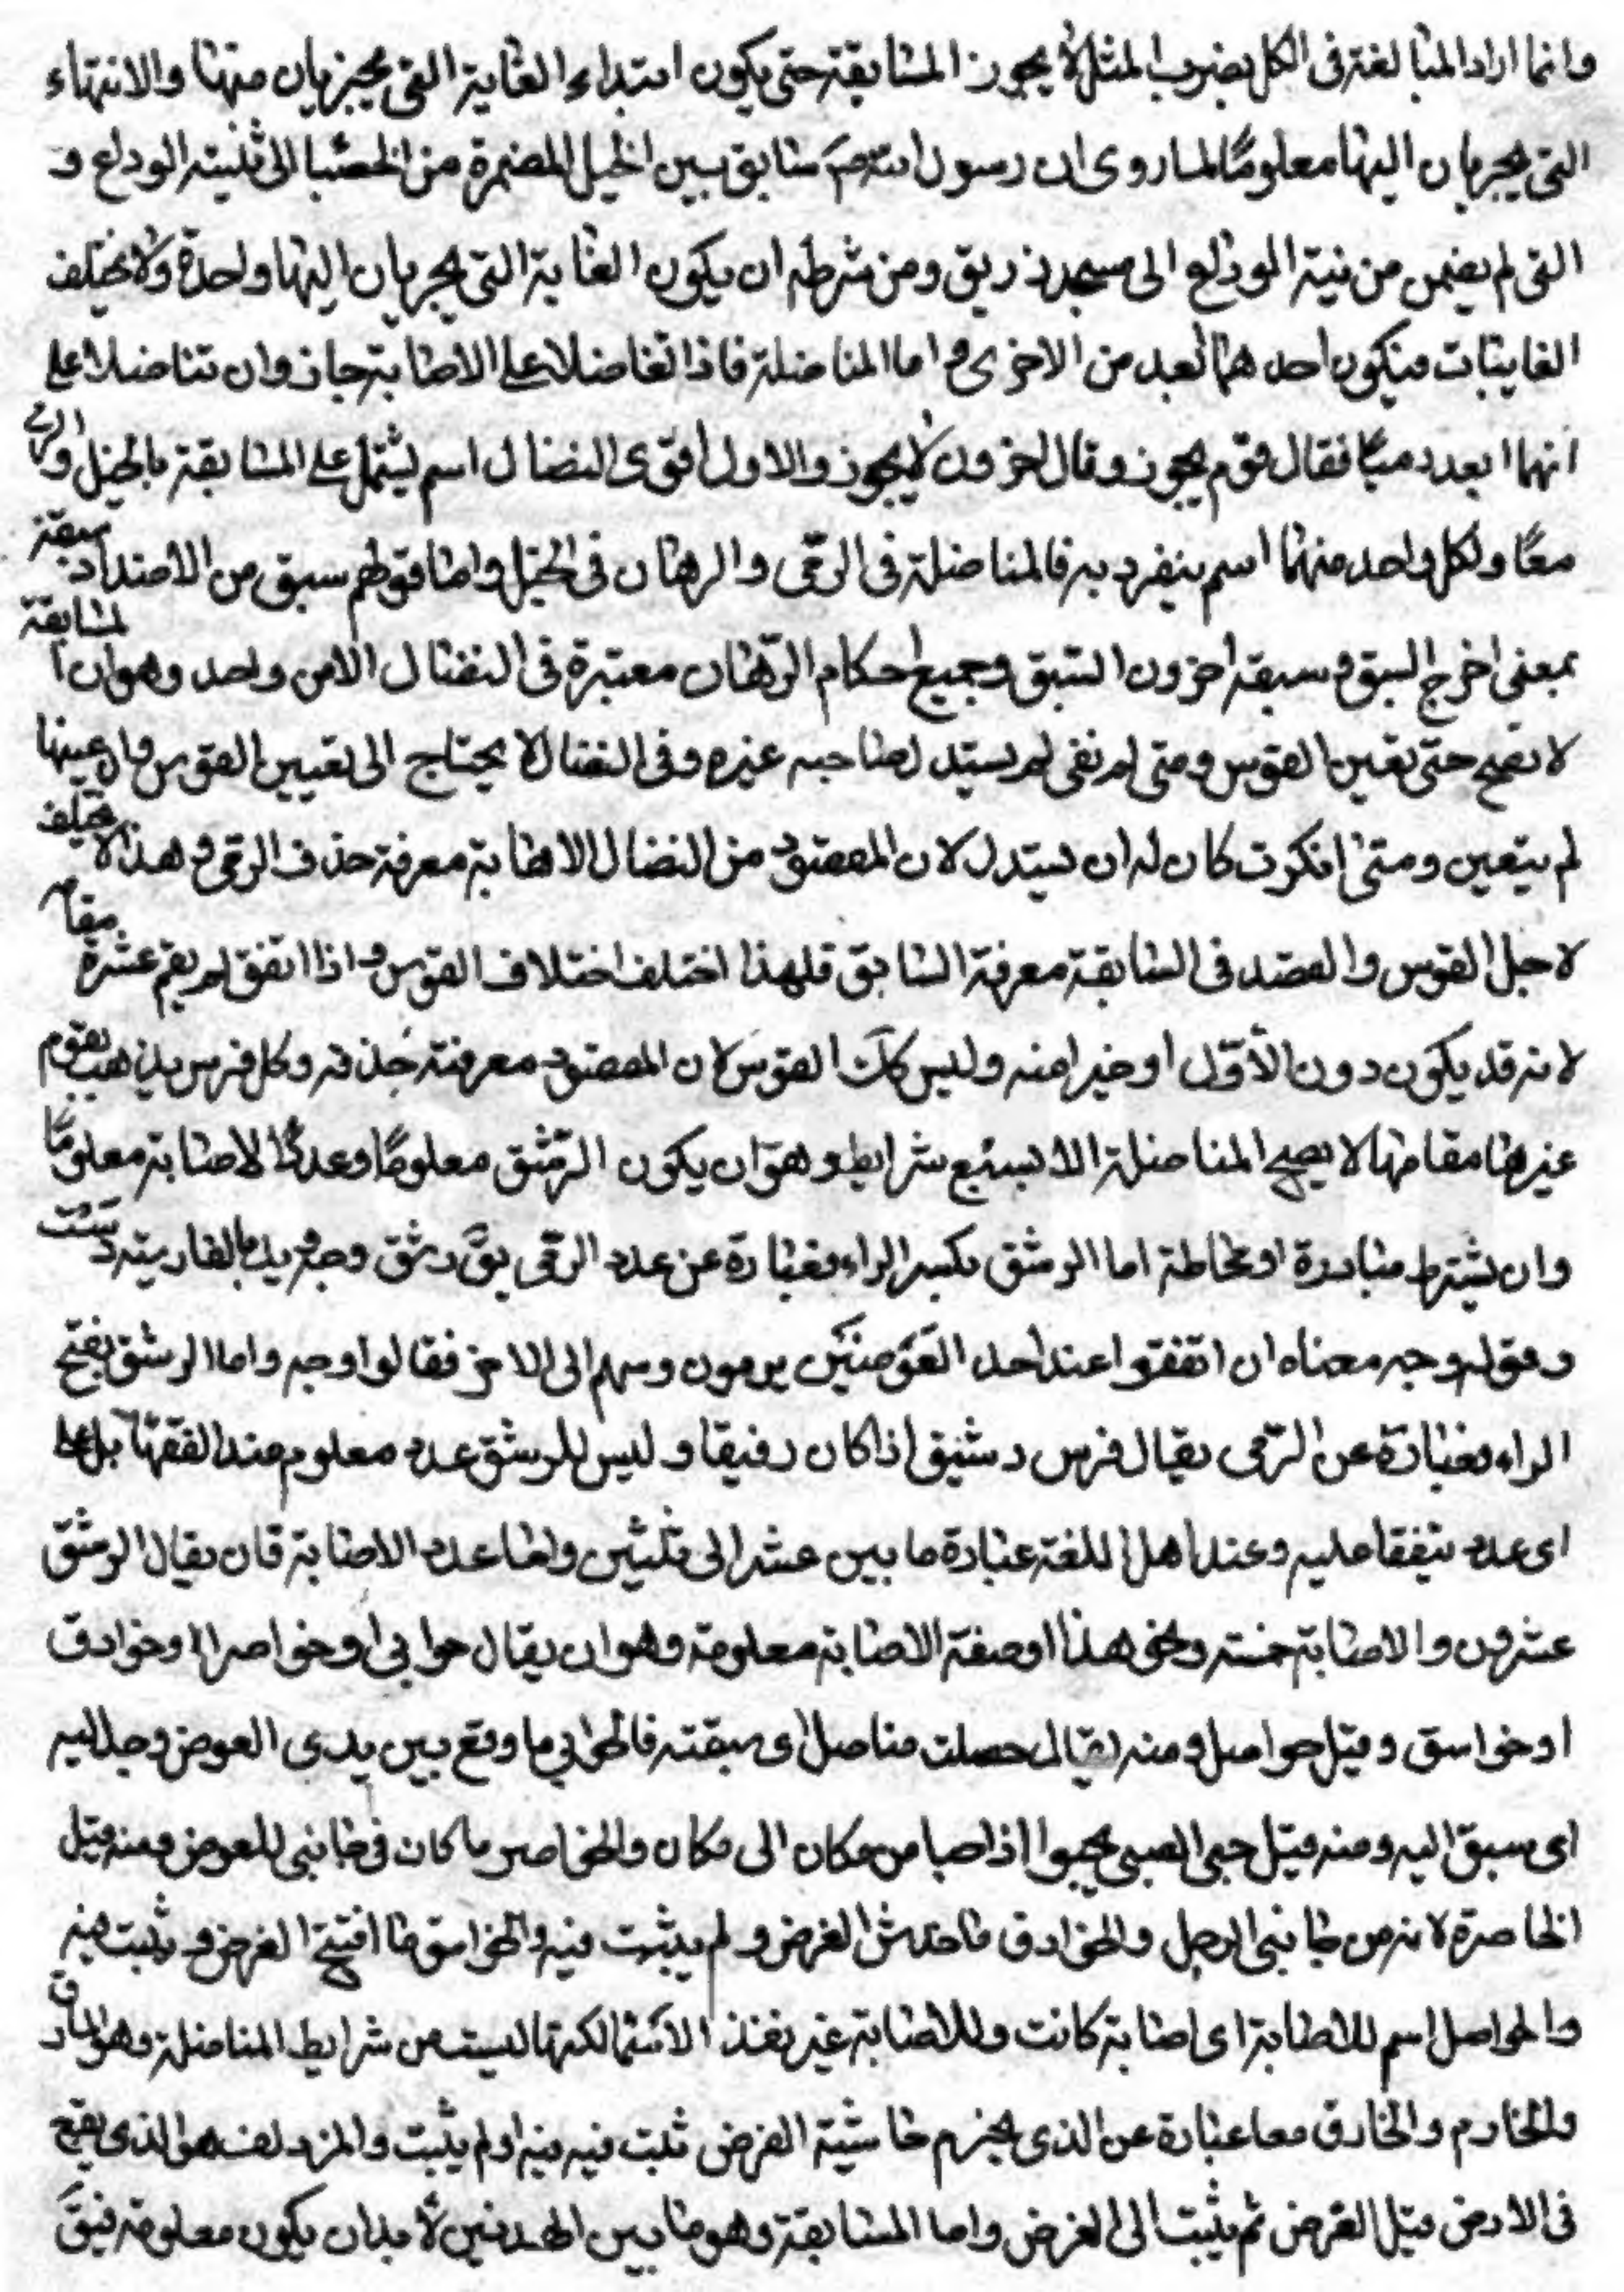 وانما اراد المبالغة فى الكل بضرب المثل لا يجوز المسابقة حتى يكون ابتداء الغاية التى يجريان منها والانتهاء
التى يجريان اليها معلومًا لما روى ان رسول الله صم سابق بين الخيل المضمرة من الحصبا الى ثنية الوداع و
التى لم يضمر من ثنية الوداع الى مسجد زريق ومن شرطه ان يكون الغاية التى يجريان اليها واحدة ولا يختلف
الغايتان فيكون احدهما ابعد من الاخرى و اما المناضلة فاذا تفاضلا على الاصابة جاز وان تناضلا على
انهما ابعد رميًا فقال قوم يجوز وقال اخرون لا يجوز والاول اقوى النضال اسم يشتمل على المسابقة بالخيل والرمى
معًا ولكل واحد منهما اسم ينفرد به فالمناضلة فى الرمى والرهان فى الخيل واما قولهم سبق من الاضداد سبقة
بمعنى اخرج السبق و سبقه احرز السبق وجميع احكام الرهان معتبرة فى النضال الا من واحد وهو ان المسابقة
لا تصح حتى تعين القوس ومتى لم نفى لم يستبد لصاحبه غيره وفى النضال لا يحتاج الى تعيين القوس وان عينها
لم يتعين ومتى انكرت كان له ان يستبدل لان المقصود من النضال الاصابة معرفة حذف الرمى و هذا لا يختلف
لاجل القوس والقصد فى السابقة معرفة السابق فلهذا اختلف اختلاف القوس و اذا اتفق لم يقم غيره مقامه
لانه قد يكون دون الأول او خيرا منه وليس كك القوس لان المقصود معرفة حذفه وكل فرس يذهب يقوم
غيرها مقامها لا يصح المناضلة الا بسبع شرايط وهو ان يكون الرشق معلومًا وعدد الاصابة معلومًا
وان يشترط مبادرة او محاطة اما الرشق بكسر الراء فعبارة عن عدد الرمى يق رشق وجه ويد بالفارسية دست
وقوله وجه معناه ان اتفقوا عند احد القومين يرمون وسهم الى الاخر فقالوا وجه واما الرشق بفتح
الراء فعبارة عن الرمى يقال فرس رشيق اذا كان رفيقا و ليس للرشق عدد معلوم عند الفقها بل على
اى عدد يتفقا عليه وعند اهل اللغة عبارة ما بين عشر الى ثلثين واما عدد الاصابة فان يقال الرشق
عشرون والاصابة خمسة ونحو هذا او صفة الاصابة معلومة وهو ان يقال حوابى او خواصر او خوارق
او خواسق وقيل حوامل ومنه يقال حصلت مناصل اى سبقته فالحوابى ما وقع بين يدى العوض وجد اليه
اى سبق اليه ومنه قيل حبى الصبى يحبوا اذا حبا من مكان الى مكان والخاصر ما كان فى جانبى للعوض ومنه قيل
الخاصرة لانه من جانبى الرجل والخوارق ما خدش الغرض و لم يثبت فيه والخواسق ما افتتح الغرض و ثبت فيه
والحواصل اسم للاصابة اى اصابة كانت وللاصابة غير هذا الاسما لكنها ليست من شرايط المناضلة وهو المارق
والخارم والخارق معا عبارة عن الذى يخرم حاشية الغرض ثبت فيه او لم يثبت والمزدلف هو الذى يقع
فى الارض قبل الغرض ثم يثبت الى الغرض واما المسابقة وهو ما بين الهدفين لا بد ان يكون معلومة فيق